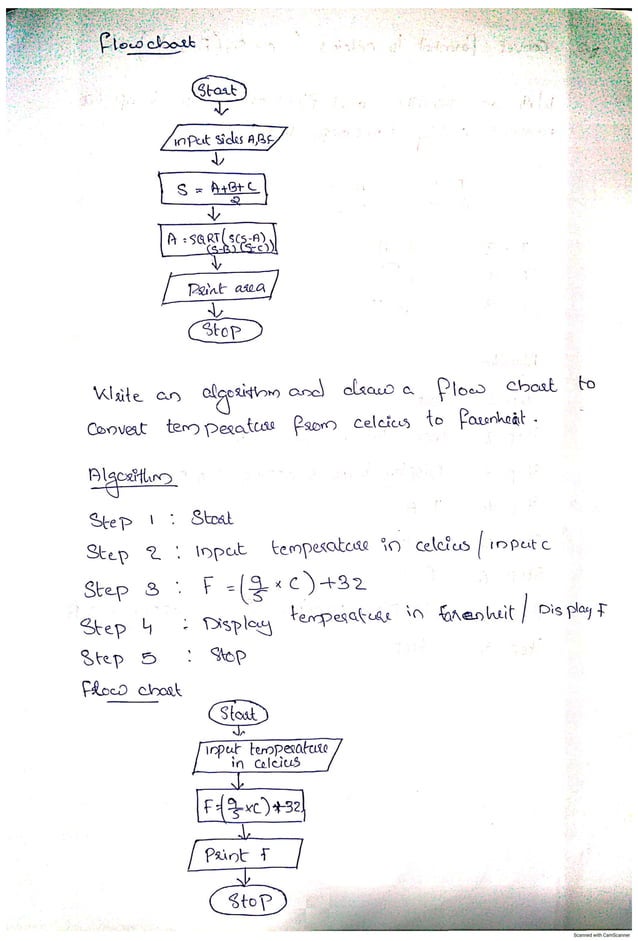 Flowchart:
Start
input sides A,B,C
S = A+B+C
2
A = SQRT(S(S-A)
(S-B)(S-C))
Print area
Stop
Write an algorithm and draw a flow chart to
convert temperature from celcius to farenheit.
Algorithm
Step 1 : Start
Step 2 : Input temperature in celcius / input C
Step 3 : F = (9/5 × C) +32
Step 4 : Display temperature in farenheit / Display F
Step 5 : Stop
Flow chart
Start
input temperature
in celcius
F=(9/5 ×C)+32
Print F
Stop
Scanned with CamScanner